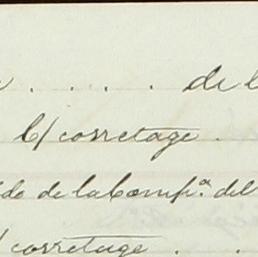 . . . . de l
C/ corretage .
de de la Comp.ª del
/ corretage . .